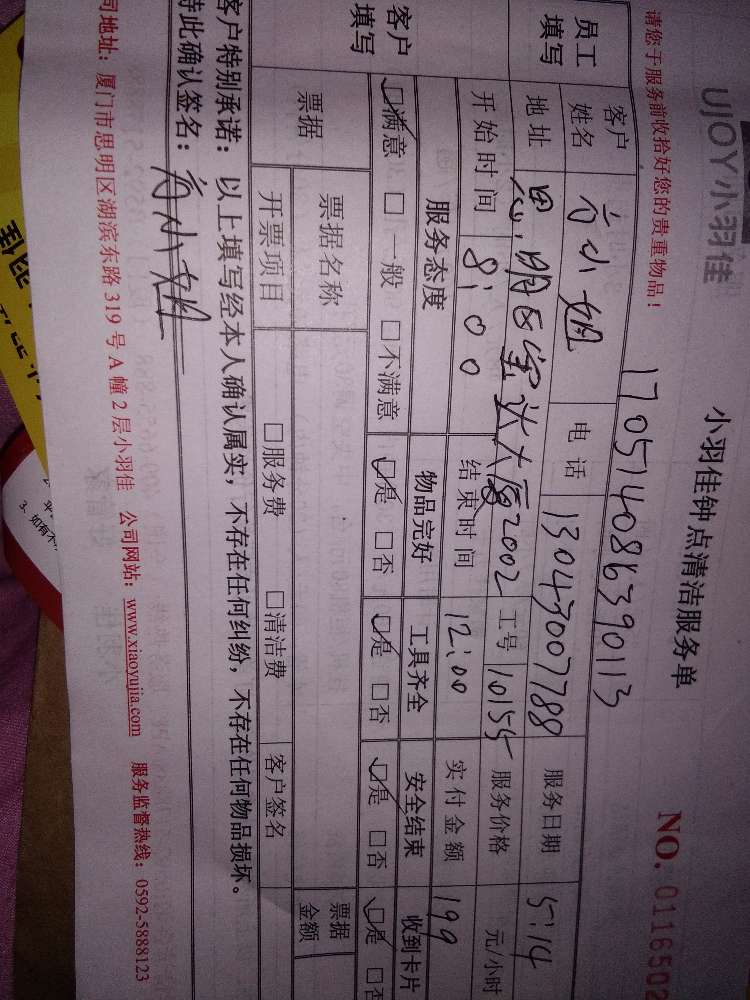 UJOY小羽佳
小羽佳钟点清洁服务单
NO. 0116502
请您于服务前收拾好您的贵重物品！
17051408639０113
员工填写
客户姓名 方小姐 电话 13043007788 服务日期 5.14
地址 思明区宝达大厦2002 工号 10155 服务价格 元/小时
开始时间 8:00 结束时间 12:00 实付金额 199
客户填写
服务态度 物品完好 工具齐全 安全结束 收到卡片
☑满意 □一般 □不满意 ☑是 □否 ☑是 □否 ☑是 □否 ☑是 □否
票据 票据名称 票据金额
开票项目 □服务费 □清洁费 客户签名
客户特别承诺：以上填写经本人确认属实，不存在任何纠纷，不存在任何物品损坏。
特此确认签名：方小姐
司地址：厦门市思明区湖滨东路 319 号 A 幢 2 层小羽佳 公司网站：www.xiaoyujia.com 服务监督热线：0592-5888123
3、如有不